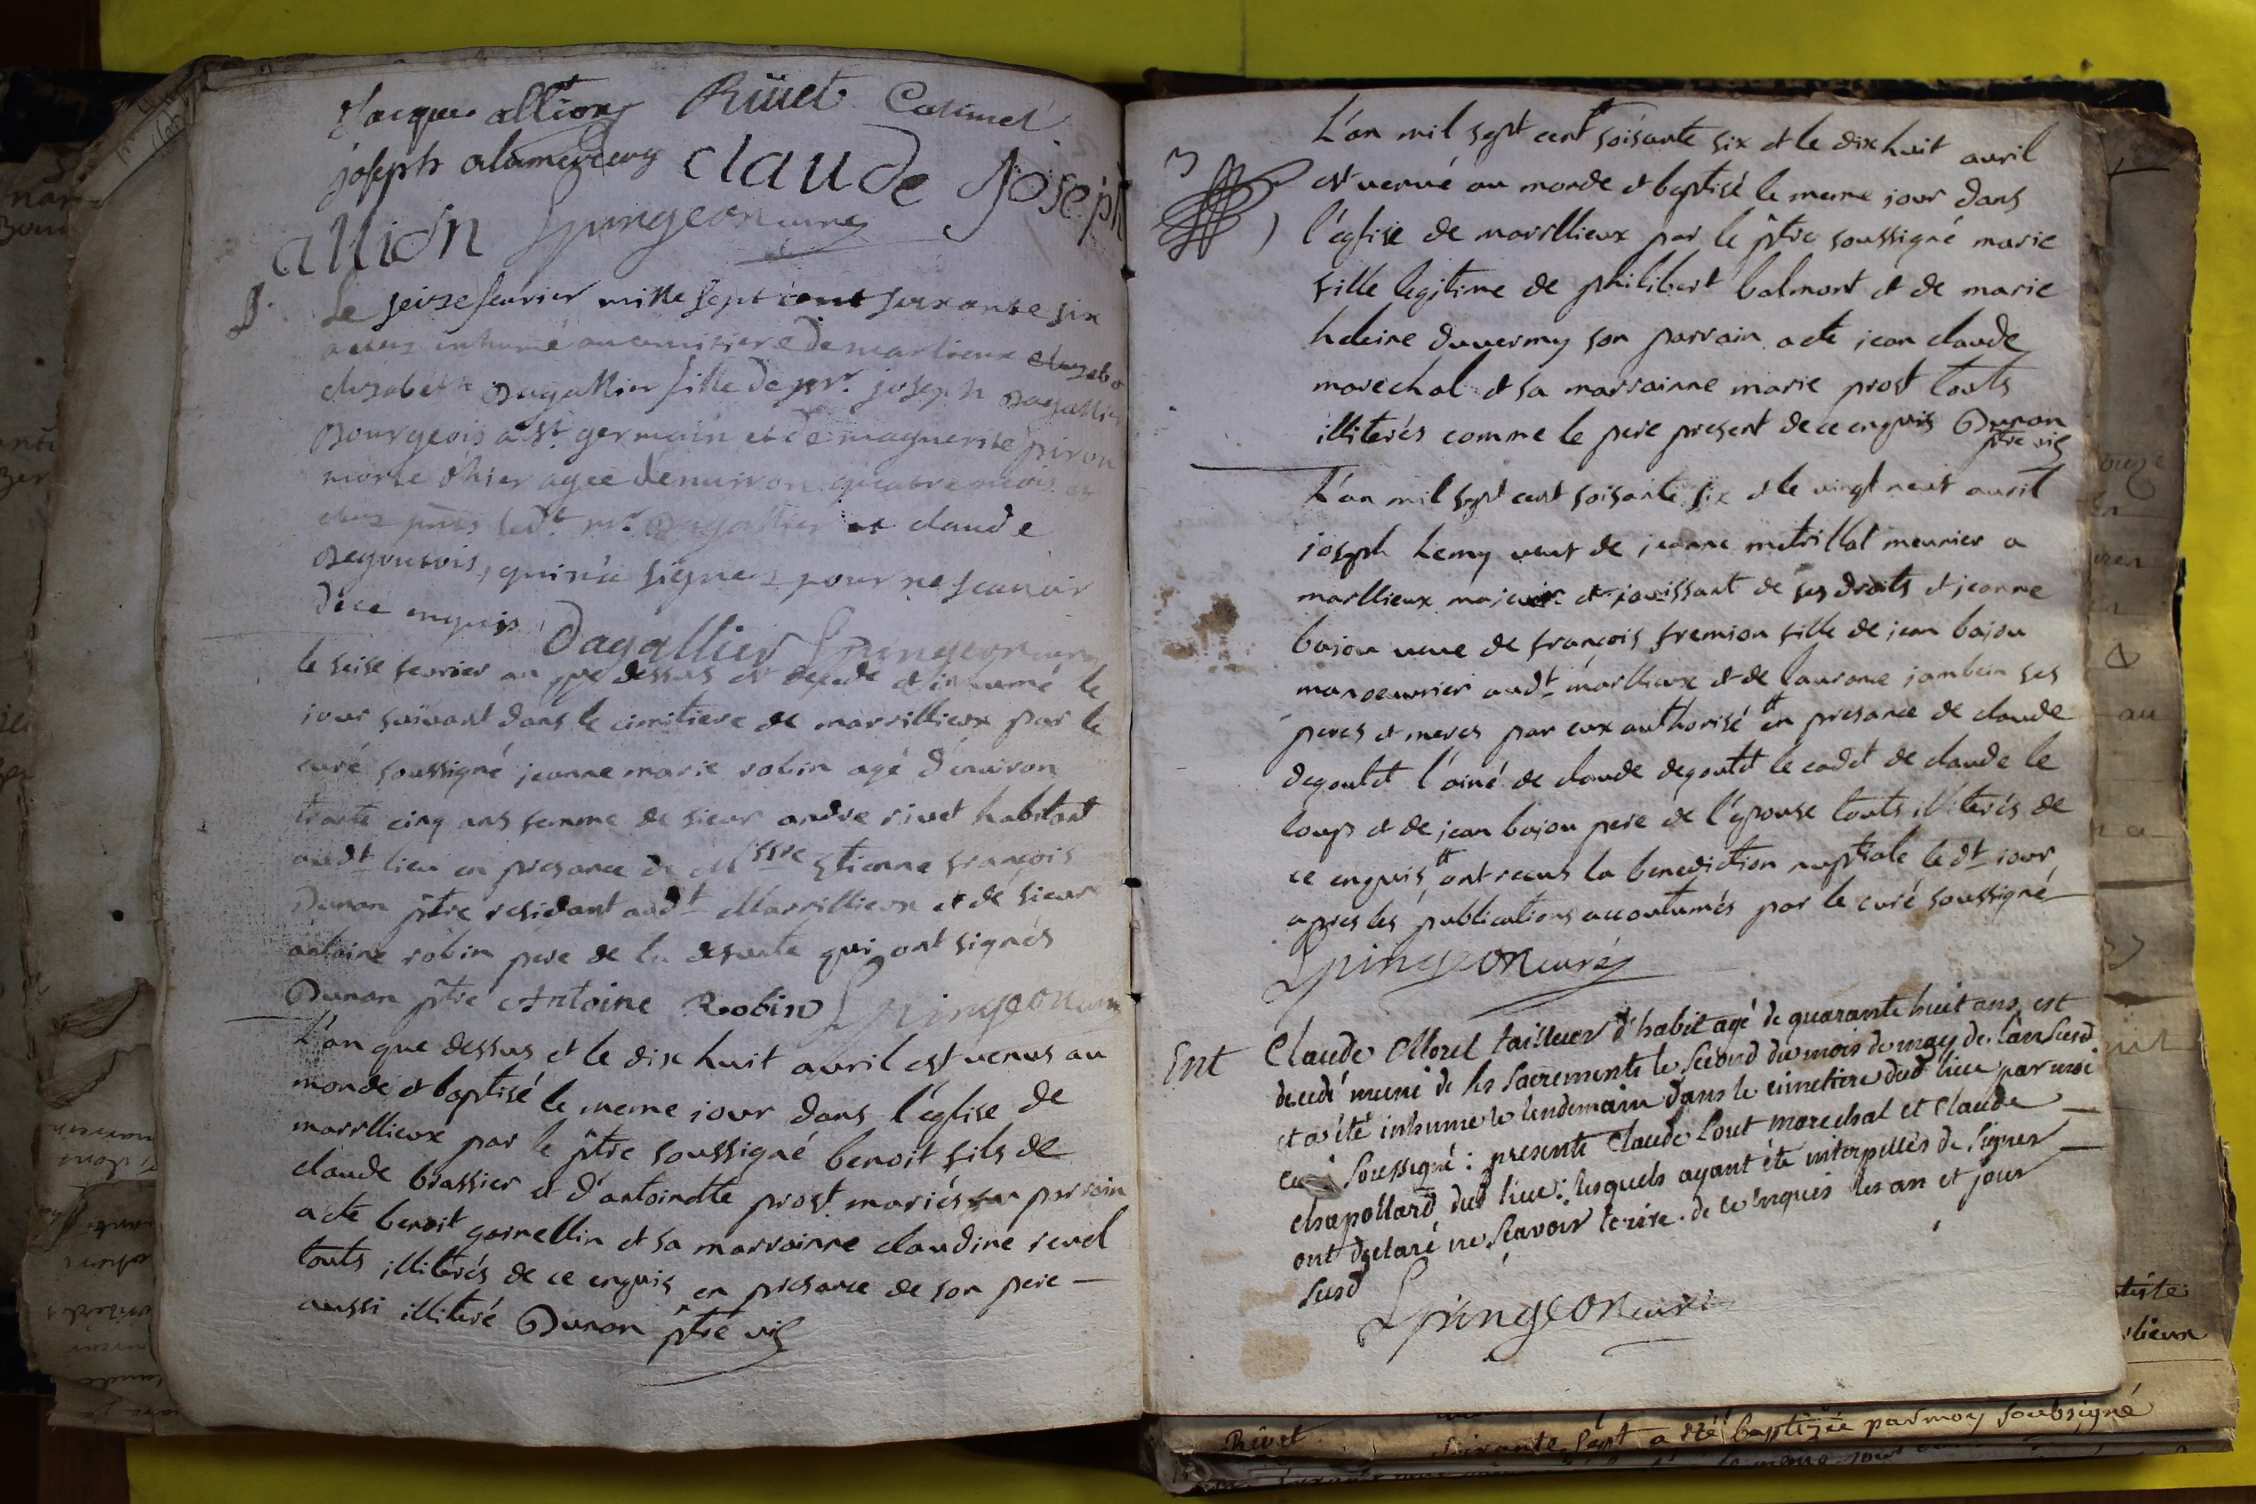 Jacques allion Rivet Colimel
joseph alamercery claude Joseph
allion Spingeon curé
Le seize feurier mille sept cent soixante six
a eté inhumé au cimitiere de marlieux
elizabeth Dagallier fille de sr. joseph Dagallier
Bourgeois a st. germain et de marguerite piron
morte d'hier agée d'enuiron quatre mois
led.t mr. Dagallier et claude
Degoutois, qui n'a signez pour ne scauoir
de ce enquis Dagallier Spingeon curé
le seise feurier an que dessus est decede et inhumé le
jour suivant dans le cimitiere de marrillieux par le
curé soussigné jeanne marie robin agé d'enuiron
trante cinq ans femme de sieur andre rivet habitant
audt lieu en presance de Mssre Etienne françois
Dunan ptre residant audt Marrillieux et de sieur
antoine robin pere de la defunte qui ont signés
Dunan ptre Antoine Robin Spingeon curé
L'an que dessus et le dix huit auril est venus au
monde et baptisé le meme iour dans l'église de
marrllieux par le ptre soussigné benoit fils de
claude brassier et d'antoinette prost mariés son parrain
a cté benoit goinellin et sa marrainne claudine revel
touts illiterés de ce enquis en presance de son pere
aussi illiteré Dunan ptre vic
L'an mil sept cent soisante six et le dix huit auril
est venué au monde et baptisé le meme iour dans
l'église de marrllieux par le ptre soussigné marie
fille legitime de philibert balmont et de marie
heleine duvermy son parrain a cté jean claude
marechal et sa marrainne marie prost touts
illiterés comme le pere present de ce enquis Dunan
ptre vic
L'an mil sept cent soisante six et le vingt neuf auril
joseph hemy veuf de jeanne metrillat meunier a
marllieux majeur et jouissant de ses droits et jeanne
bajou veuve de françois fremion fille de jean bajou
manoeuvrier audt marllieux et de laurance jambein ses
peres et meres par eux authorisé et en presance de claude
degoulet l'ainé de claude degoutet le cadet de claude le
loup et de jean bajou pere de l'épouse touts illiterés de
ce enquis ont receus la benediction nuptiale ledt iour
apres les publications accoutumés par le curé soussigné
Spingeon curé
Ent Claude Morel tailleur d'habit agé de quarante huit ans est
decedé muni de ses sacrements le second du mois de may de l'an susd
et a été inhumé le lendemain dans le cimetiere dud lieu par moi
curé soussigné : presents Claude Lout marechal et Claude
chapollard dud lieu : lesquels ayant été interpellés de signer
ont declaré ne scavoir ecrire de ce enquis les an et jour
susd
Spingeon curé
Rivet
soixante sept a été baptizée par moy soubsigné